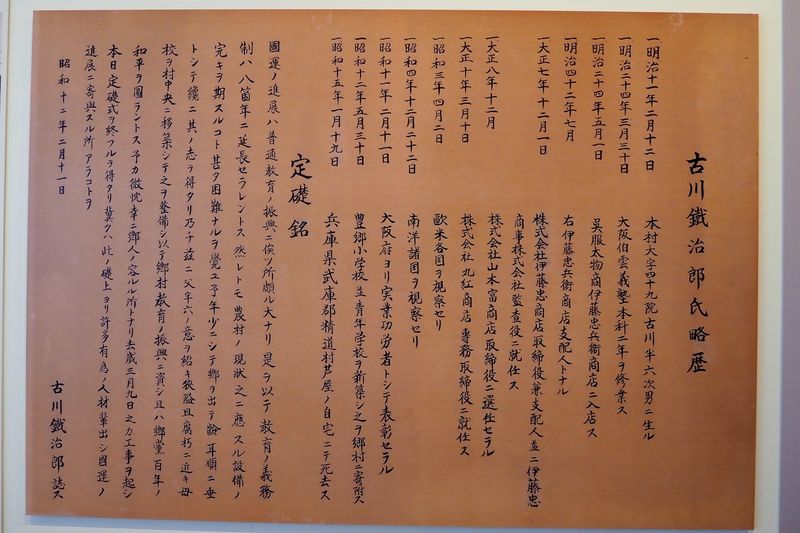 古川鐵治郎氏略歴
一明治十一年二月十二日 本村大字四十九院古川半六次男ニ生ル
一明治二十四年三月三十日 大阪伯雲義塾本科二年ヲ修業ス
一明治二十四年五月一日 呉服太物商伊藤忠兵衛商店ニ入店ス
一明治四十二年七月 右伊藤忠兵衛商店支配人トナル
一大正七年十二月一日 株式会社伊藤忠商店取締役兼支配人並ニ伊藤忠
商事株式会社監査役ニ就任ス
一大正八年十二月 株式会社山本富商店取締役ニ選任セラル
一大正十年三月十日 株式会社丸紅商店専務取締役ニ就任ス
一昭和三年四月二日 歐米各国ヲ視察セリ
一昭和四年十二月二十二日 南洋諸国ヲ視察セリ
一昭和十一年二月十一日 大阪府ヨリ実業功労者トシテ表彰セラル
一昭和十二年五月三十日 豊郷小学校並青年学校ヲ新築シ之ヲ郷村ニ寄附ス
一昭和十五年一月十九日 兵庫県武庫郡精道村芦屋ノ自宅ニテ死去ス
定礎銘
國運ノ進展ハ普通教育ノ振興ニ俟ツ所頗ル大ナリ是ヲ以テ教育ノ義務
制ハ八箇年ニ延長セラレントス然レトモ農村ノ現状之ニ應スル設備ノ
完キヲ期スルコト甚タ困難ナルヲ覺ユ予年少ニシテ郷ヲ出テ齢耳順ニ垂
トシテ纔ニ其ノ志ヲ得タリ乃チ茲ニ父半六ノ意ヲ紹キ狹隘且腐朽ニ近キ母
校ヲ村中央ニ移築シテ之ヲ整備シ以テ郷村教育ノ振興ニ資シ且ハ郷黨百年ノ
和平ヲ圖ラントス予カ微忱幸ニ郷人ノ容ルル所トナリ去歳三月九日之カ工事ヲ起シ
本日定礎式ヲ終フルヲ得タリ冀クハ此ノ礎上ヨリ許多有為ノ人材輩出シ國運ノ
進展ニ寄與スル所アラコトヲ
昭和十二年二月十一日
古川鐵治郎誌ス